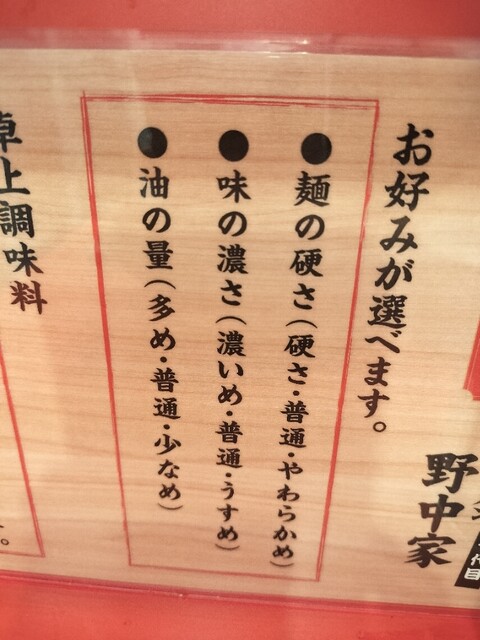 お好みが選べます。
野中家
代目
●麺の硬さ(硬さ・普通・やわらかめ)
●味の濃さ(濃いめ・普通・うすめ)
●油の量(多め・普通・少なめ)
卓上調味料